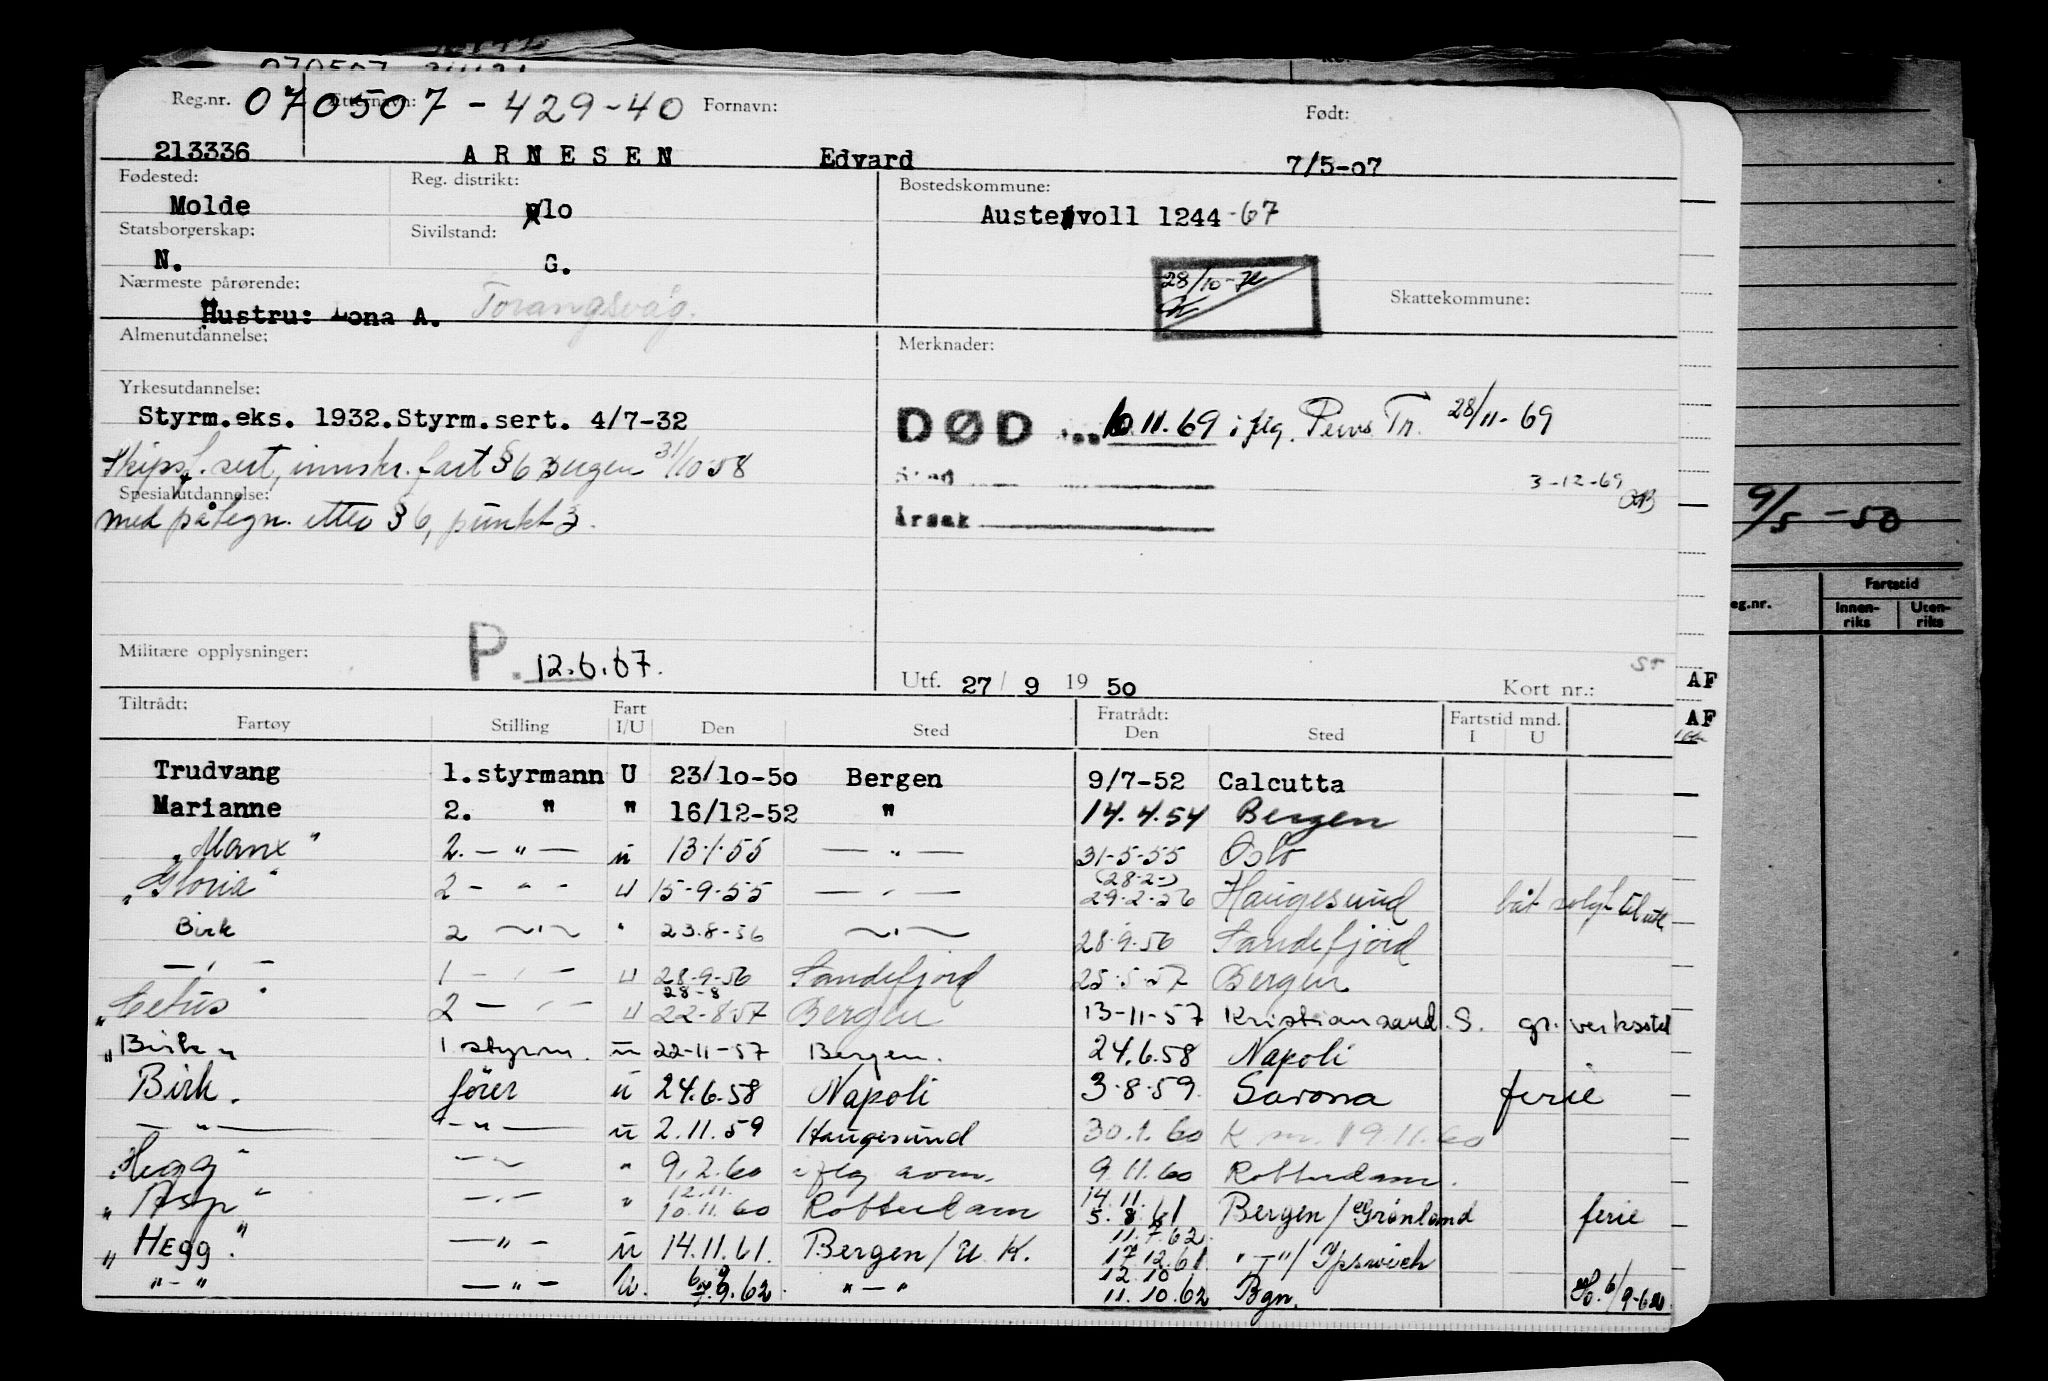 Reg.nr. 070507-429-40 Etternavn: Fornavn: Født:
213336 ARNESEN Edvard 7/5-07
Fødested: Reg. distrikt: Bostedskommune:
Molde lo Austevoll 1244-67
Statsborgerskap: Sivilstand:
N. G.
28/10-70
Nærmeste pårørende: Skattekommune:
Hustru: Lona A. Torangsvåg.
Almenutdannelse: Merknader:
Yrkesutdannelse:
Styrm.eks. 1932.Styrm.sert. 4/7-32
DØD 10.11.69 i flg. Tr. 28/11-69
Skipsf. sert, innskr. fart §6 Bergen 31/10 58
Sted 3-12-69
Spesialutdannelse:
med påtegn. etter § 6, punkt 3.
Årsak
9/5-50
Fartstid
eg.nr. Innen-riks Uten-riks
Militære opplysninger: P. 12.6.67.
Utf. 27/9 1950 Kort nr.: AF
Tiltrådt: Fart Fratrådt: Fartstid mnd. AF
Fartøy Stilling I/U Den Sted Den Sted I U
Trudvang 1.styrmann U 23/10-50 Bergen 9/7-52 Calcutta
Marianne 2. " " 16/12-52 " 14.4.54 Bergen
"Manx" 2. — " — u 13.1.55 — " — 31-5-55 Oslo
"Gloria" 2 - " - U 15-9-55 — " — (28-2-) 29-2-56 Haugesund båt solgt til utl.
Birk 2 — " — " 23.8-56 — " — 28.9.56 Sandefjord
— " — 1 — " — U 28-9-56 Sandefjord 25.5.57 Bergen
"Cetus" 2 — " — U 28-8 22-8-57 Bergen 13-11-57 Kristiansand.S. gr. verksted
"Birk" 1 styrm. u 22-11-57 Bergen. 24.6.58 Napoli
Birk. fører u 24.6.58 Napoli 3.8.59. Savona ferie
— " — — " — u 2.11.59 Haugesund 30.1.60 K m. 19.11.60
"Hegg" — " — " 9.2.60 9.11.60 Rotterdam.
"Asp" — " — " 12.11. 10.11.60 Rotterdam 14.11. 5.8.61 Bergen/Grønland ferie
"Hegg" — " — u 14.11.61. Bergen/U.K. 11.7.62. 17.12.61. " — "/Ipswich
" — " — " — U. 9.62. " — " 12.10 11.10.62 Bgn. 6/9-62